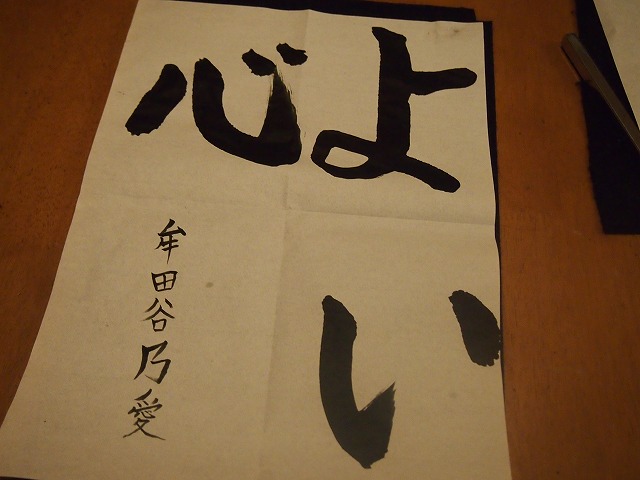 よい
心
牟田谷乃愛